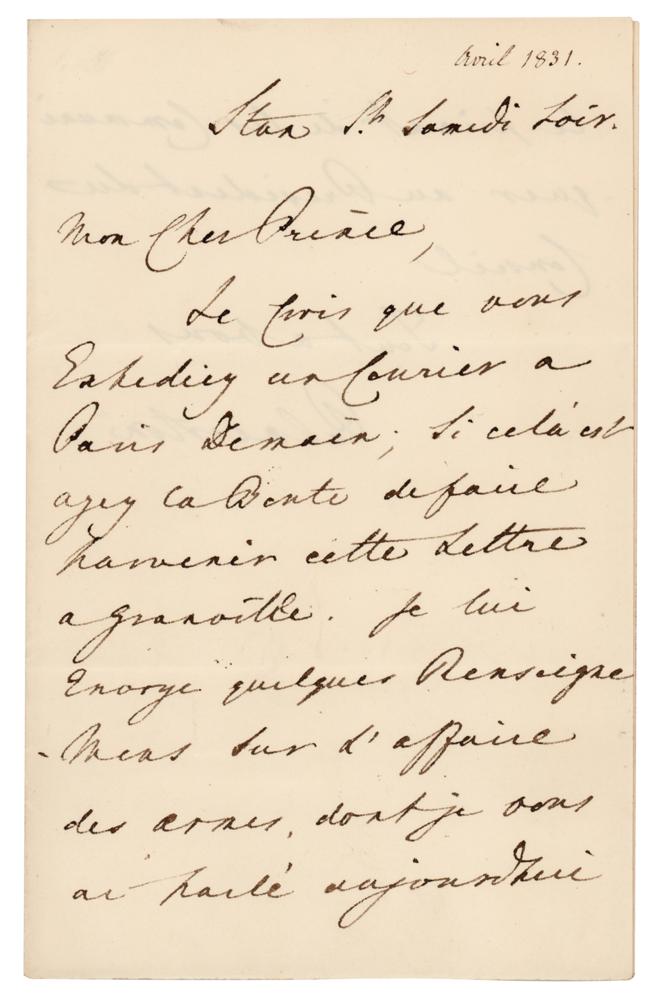 Avril 1831.
Stan St. Samedi Soir.
Mon Cher Prince,
Je Crois que vous
Expediez un Courier a
Paris Demain; Si celà est
ayez la Bonte de faire
parvenir cette Lettre
a Granville. Je lui
Envoye quelques Renseigne
-Mens sur l'affaire
des armes, dont je vous
ai parlé aujourdhui